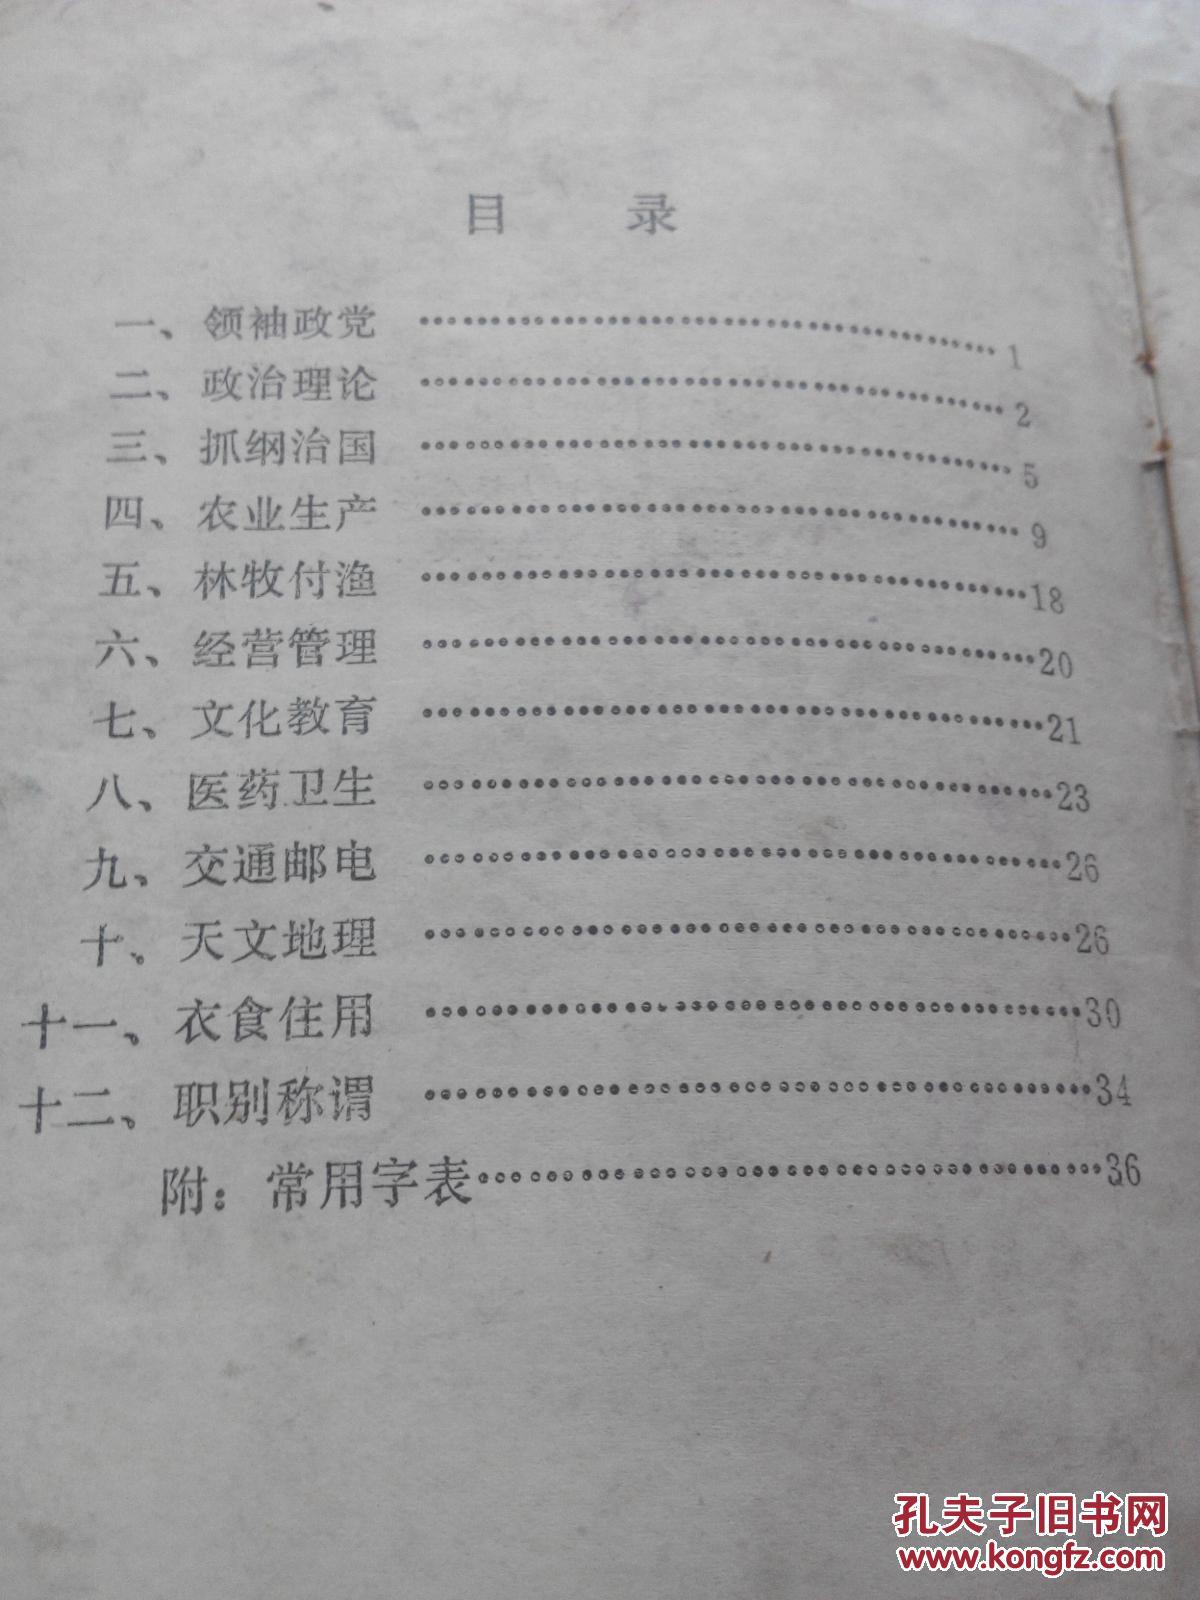 目 录
一、领袖政党 ……………………………………… 1
二、政治理论 ……………………………………… 2
三、抓纲治国 ……………………………………… 5
四、农业生产 ……………………………………… 9
五、林牧付渔 ………………………………………18
六、经营管理 ………………………………………20
七、文化教育 ………………………………………21
八、医药卫生 ………………………………………23
九、交通邮电 ………………………………………26
十、天文地理 ………………………………………26
十一、衣食住用 ………………………………………30
十二、职别称谓 ………………………………………34
附：常用字表………………………………………36
孔夫子旧书网
www.kongfz.com